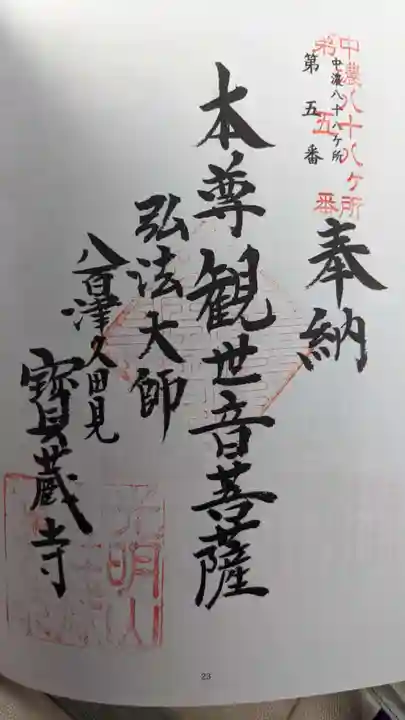 中濃八十八ヶ所
第五番
中濃八十八ヶ所
第五番
奉納
本尊観世音菩薩
弘法大師
八百津久田見
寳蔵寺
光明山
23